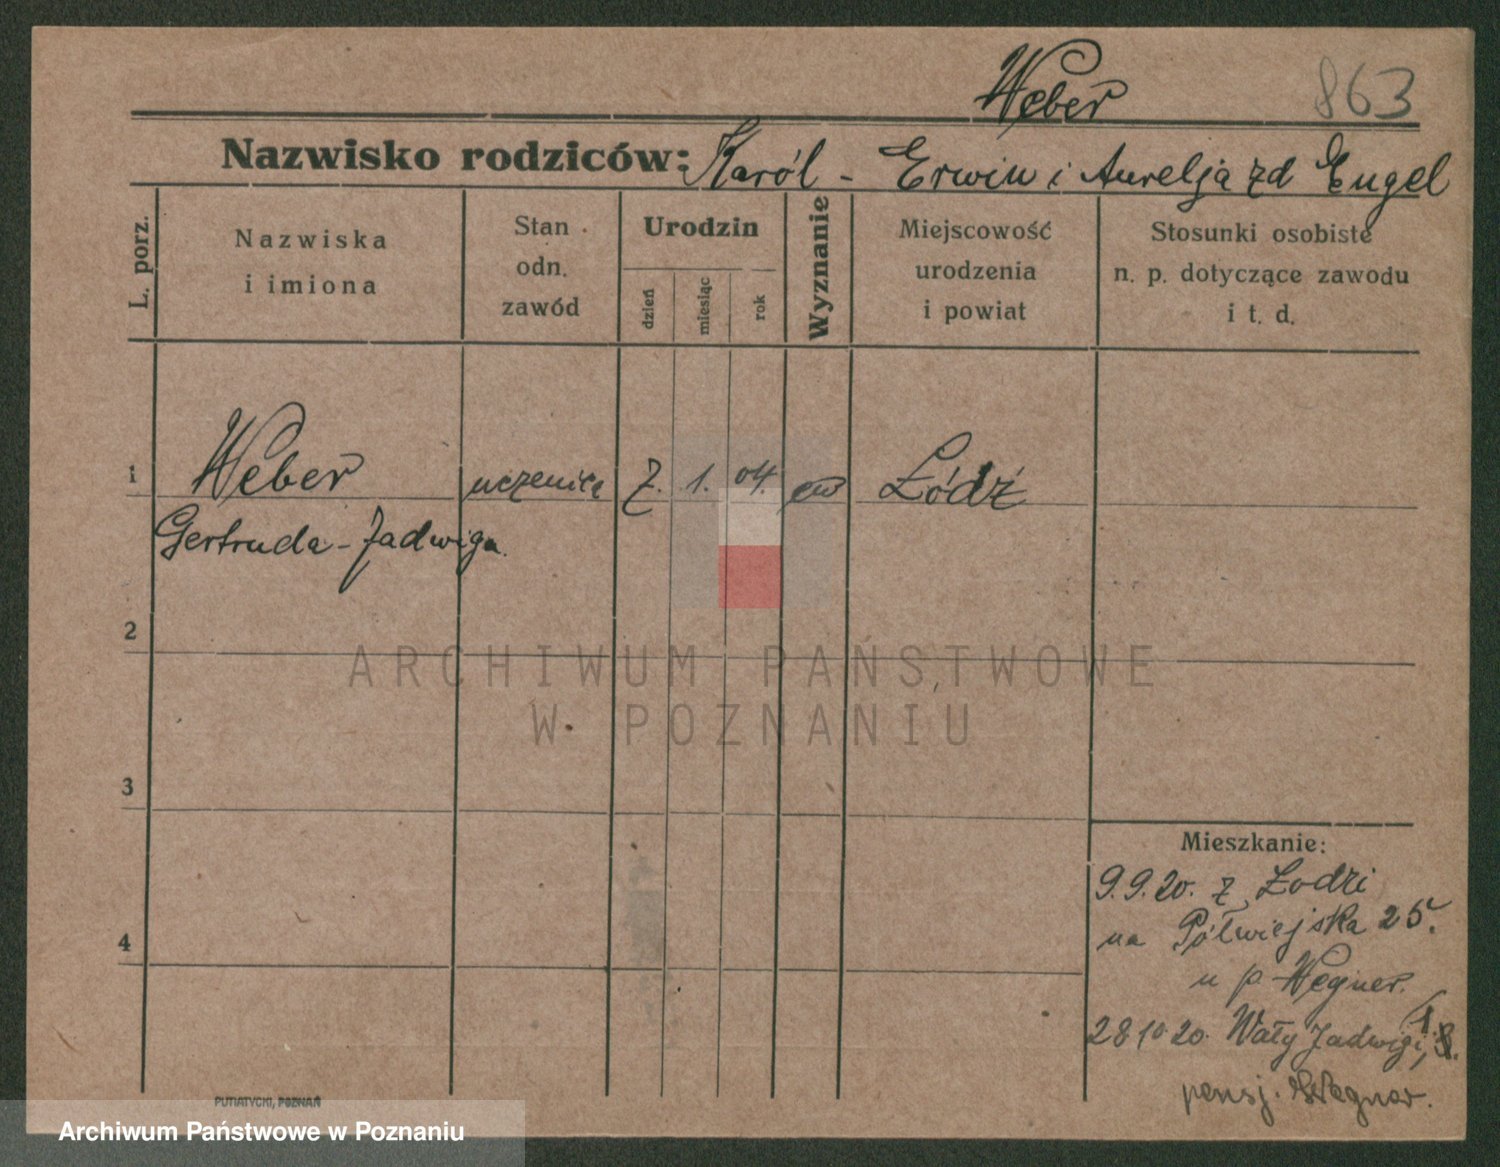 Weber
863
Nazwisko rodziców: Karól - Erwin i Aurelja zd Engel
L. porz.
Nazwiska
i imiona
Stan
odn.
zawód
Urodzin
dzień
miesiąc
rok
Wyznanie
Miejscowość
urodzenia
i powiat
Stosunki osobiste
n. p. dotyczące zawodu
i t. d.
1 Weber uczenica 7. 1. 04. ew Łódź
Gertruda - Jadwiga
2
3
4
Mieszkanie:
9.9.20. z Łodzi
na Półwiejska 25.
u p. Wegner.
28 10 20. Wały Jadwigi,
pensj. Wegner.
PUTIATYCKI, POZNAŃ
ARCHIWUM PAŃSTWOWE
W POZNANIU
Archiwum Państwowe w Poznaniu